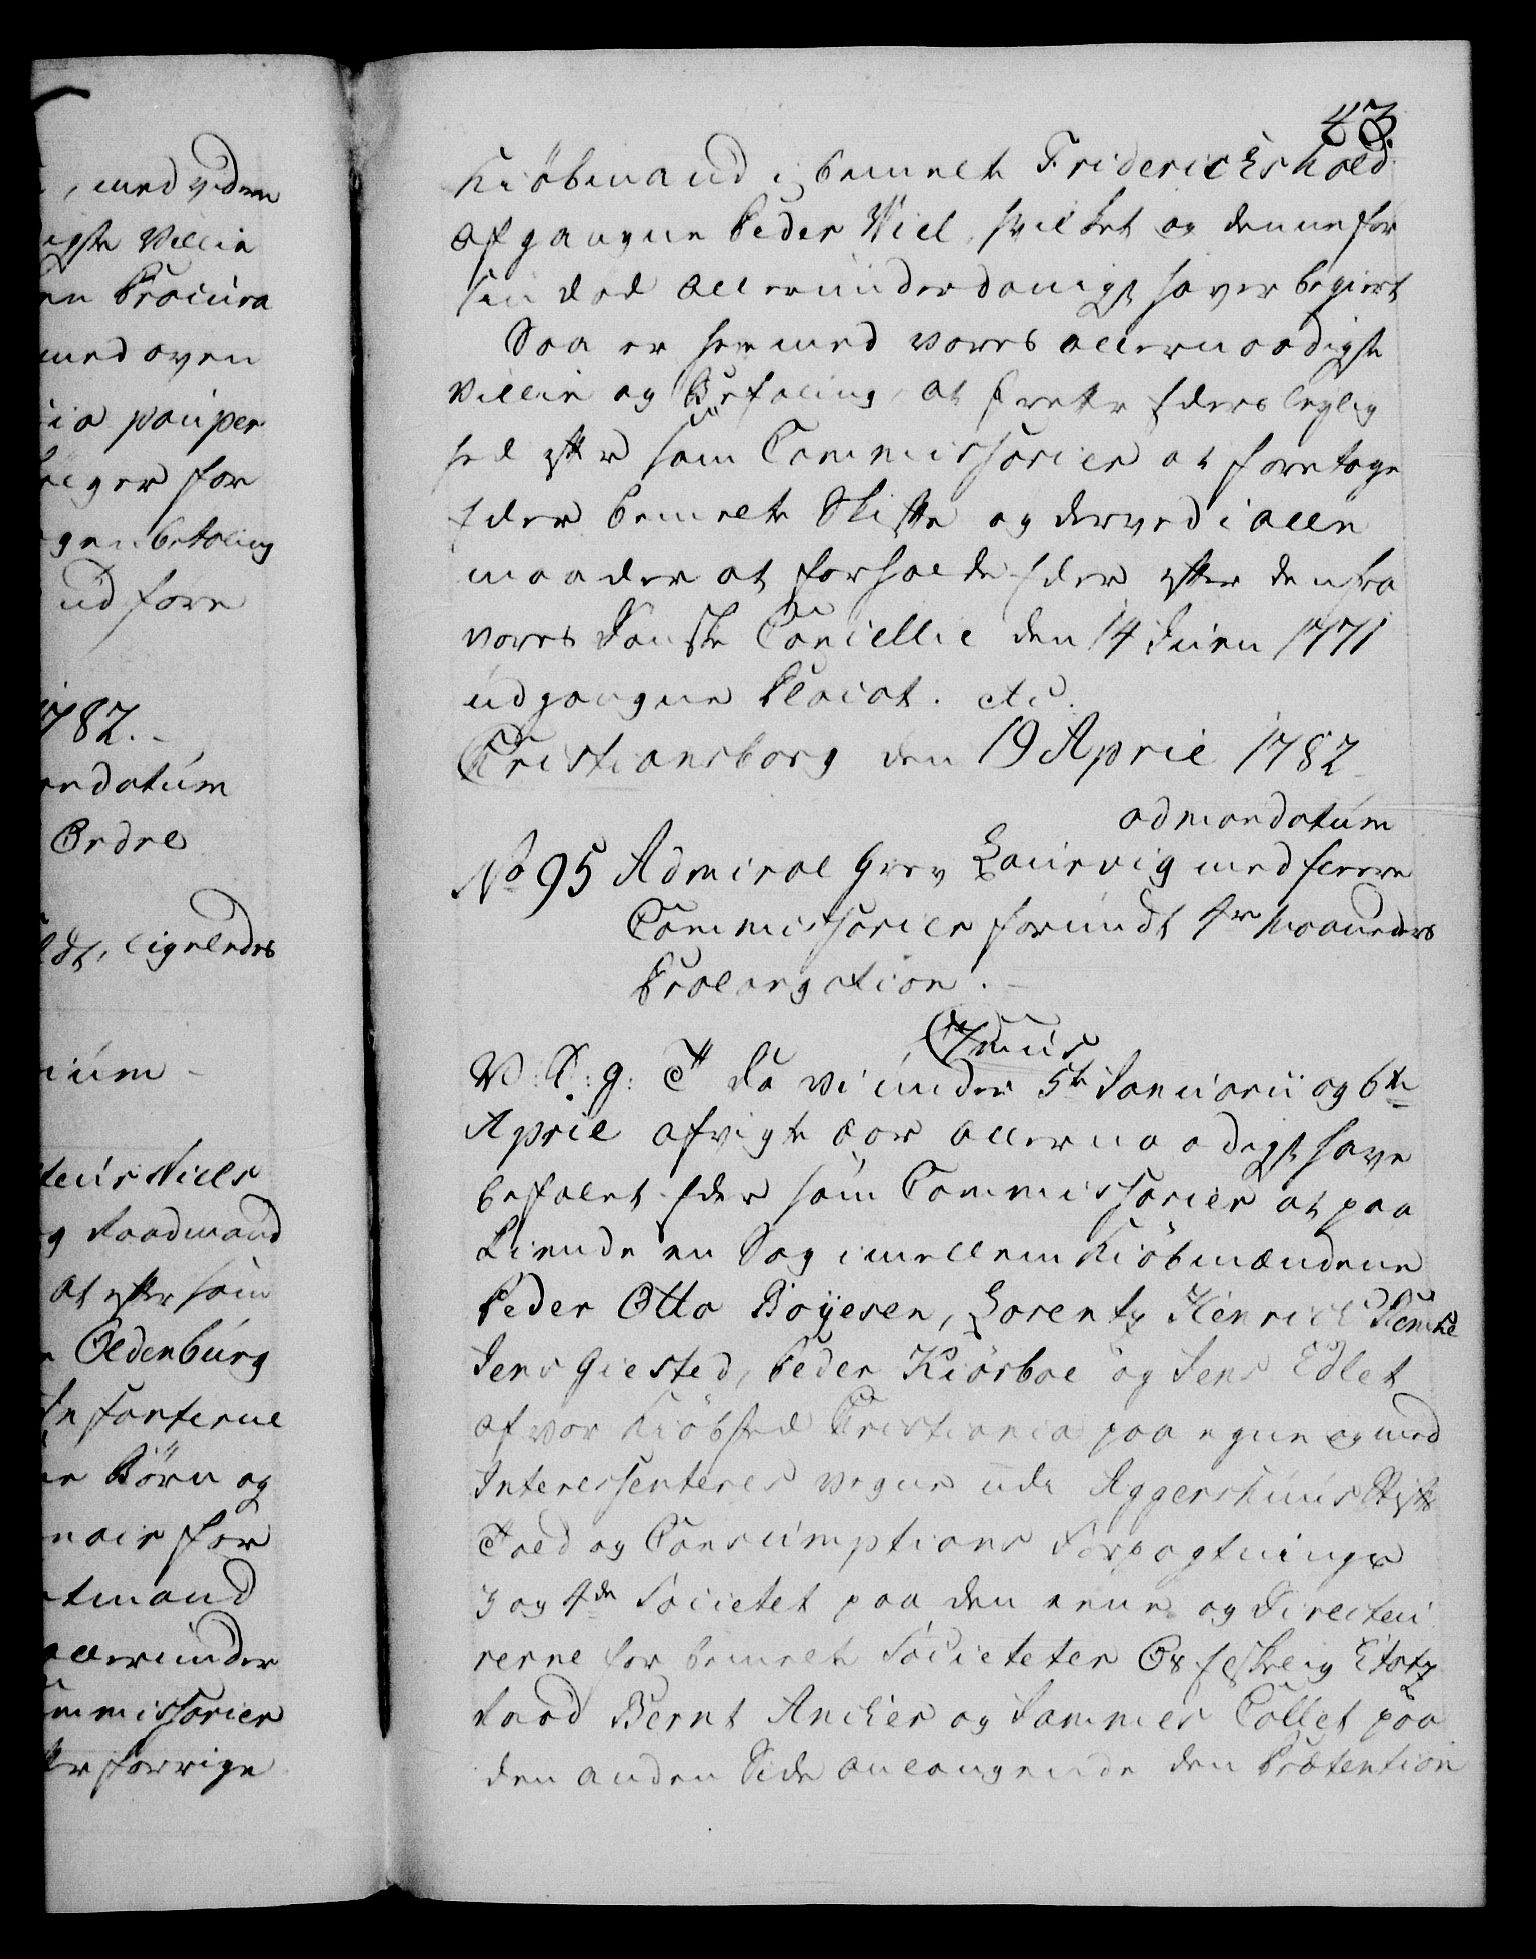 , med viden
igste Villie
en Procura
med oven
io pauper
ger for
gen betaling
ud fore
1782.
andatum
Ordre
ligeledes
ium
Niels
g Raadmand
at efter som
Oldenburg
fanterne
Børn og
for
tmand
allerunder
mmissarier
forrige
43
Kiöbmand i bemelte Friderichshald
afgangne Peder Wiel, hvilket og denne för
sin död allerunderdanigst haver begiert
Saa er hermed vores allernaadigste
Villie og Befaling, at I rette Eders leylig
hed efter som Commissarier at foretage
Eder bemelte Skifte og derved i alle
maader at forholde Eder efter den fra
vores Danske Cancellie den 14 Juni 1771
udgangne Placat. etc.
Christiansborg den 19 April 1782
admandatum
No 95 Admiral Grev Laurvig med fleere
Commissarier forundt 4re Maaneders
Prolongation.
C 7mus
V: S: g: T da vi under 5te Januarii og 6te
April afvigte aar allernaadigst have
befalet Eder som Commissarier at paa
kiende en Sag imellem Kiöbmændene
Peder Otto Boÿesen, Lorentz Henrich
Jens Giested, Peder Kiörboe og Jens Edlet
af vor Kiöbsted Christiania paa egne og med
Interessenteres vegne udi Aggershuus Stifts
Told og Consumptions Forpagtnings
3 og 4de Societet paa den eene og Directeu
rerne for bemelte Societeter Os Elskelig Etatz
Raad Bernt Ancher og Jammes Collet paa
den anden Side anlangende den Prætention